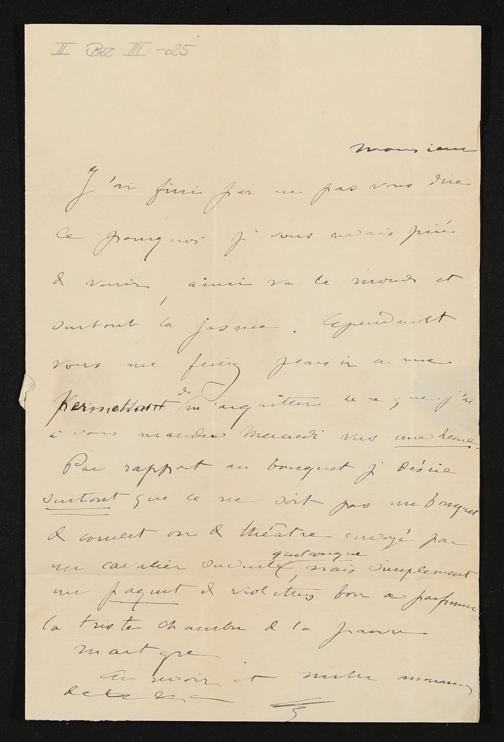 II Bz III - 25
Monsieur
J'ai fini par ne pas vous dire
le pourquoi je vous avais prié
de venir, ainsi va le monde et
surtout la
vous me plaisir en me
permettant de m'acquitter de ce que j'ai
à vous mander vers une heure.
Par rapport au bouquet je désire
surtout que ce ne soit pas un bouquet
de concert ou de théâtre envoyé par
un cavalier quelconque mais simplement
un paquet de violettes bon a parfumer
la triste chambre de la pauvre
martyre
Au revoir et mille